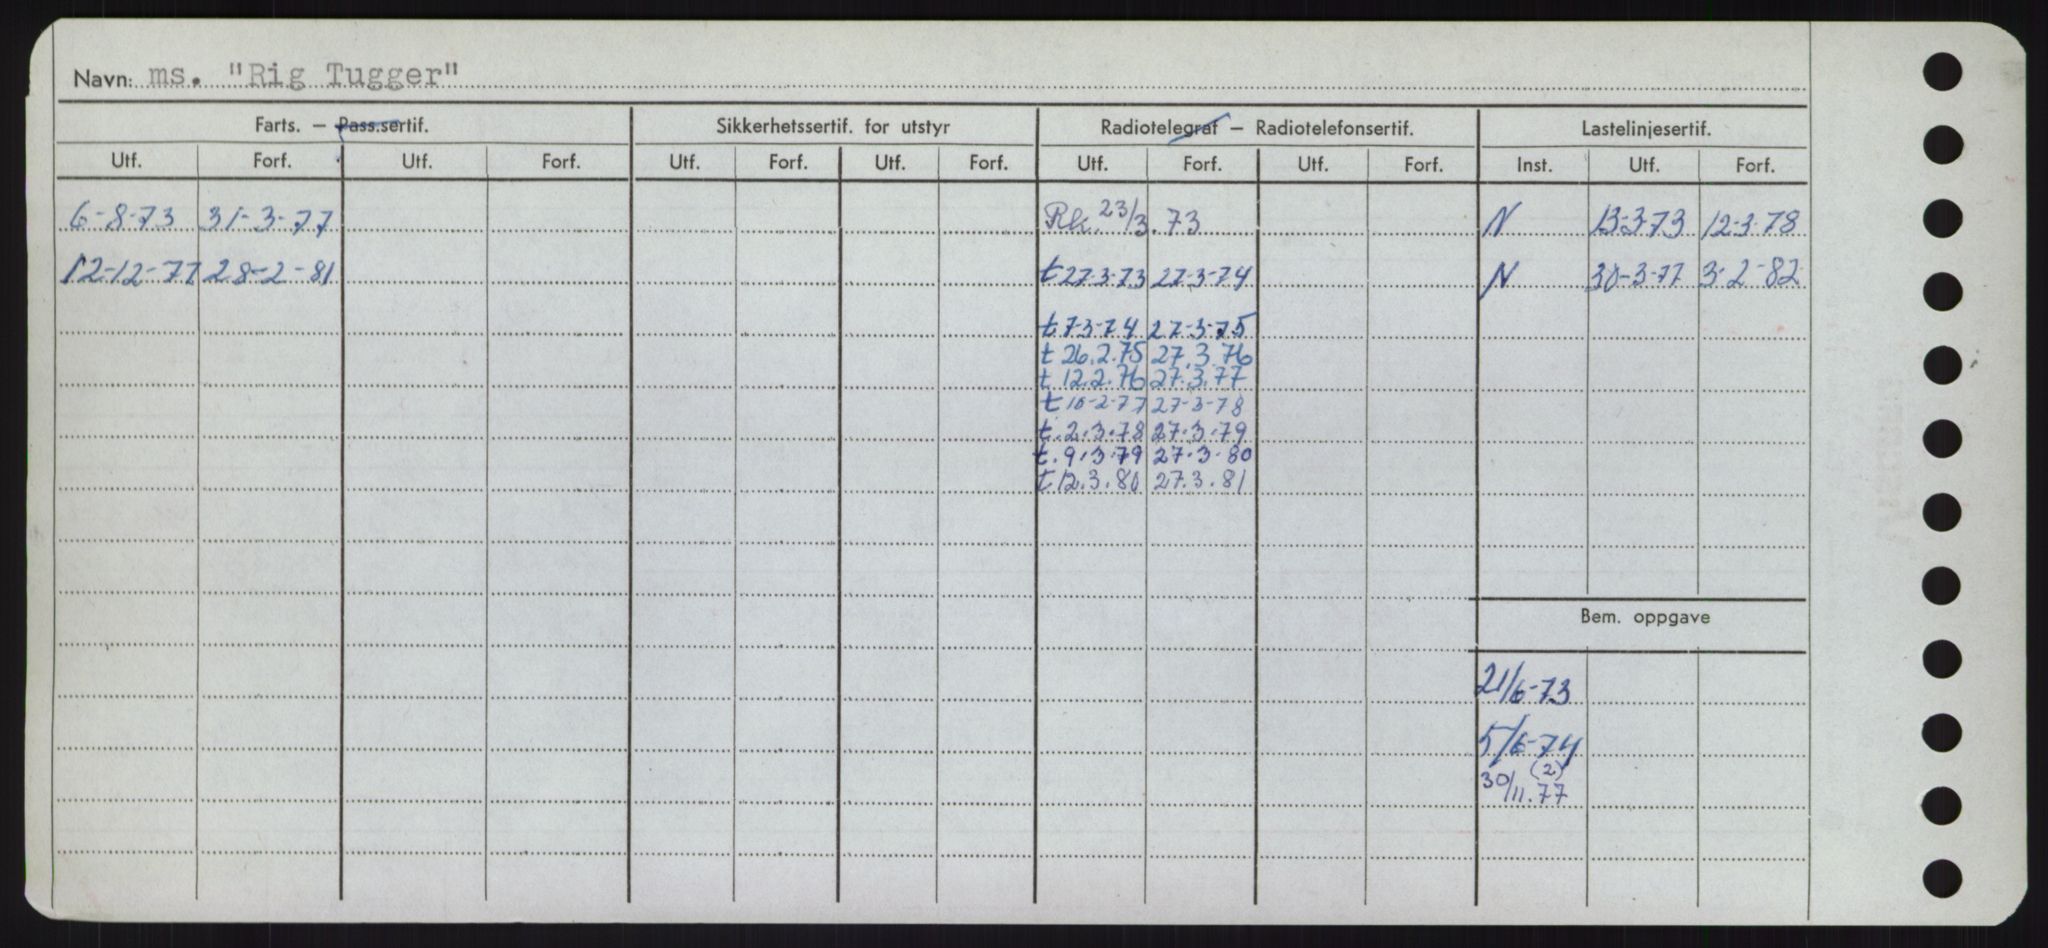 Navn: ms. "Rig Tugger"
Farts. — Pass.sertif. Sikkerhetssertif. for utstyr Radiotelegraf — Radiotelefonsertif. Lastelinjesertif.
Utf. Forf. Utf. Forf. Utf. Forf. Utf. Forf. Utf. Forf. Utf. Forf. Inst. Utf. Forf.
6-8-73 31-3-77 Rk. 23/3.73 N 13-3-73 12-3-78
12-12-77 28-2-81 t 27-3-73 27-3-74 N 30-3-77 3-2-82
t 7-3-74 27-3-75
t 26.2.75 27.3.76
t 12.2.76 27.3.77
t 10-2-77 27-3-78
t. 2.3.78 27.3.79
t. 9.3.79 27.3.80
t. 12.3.80 27.3.81
Bem. oppgave
21/6-73
5/6-74
(2)
30/11.77